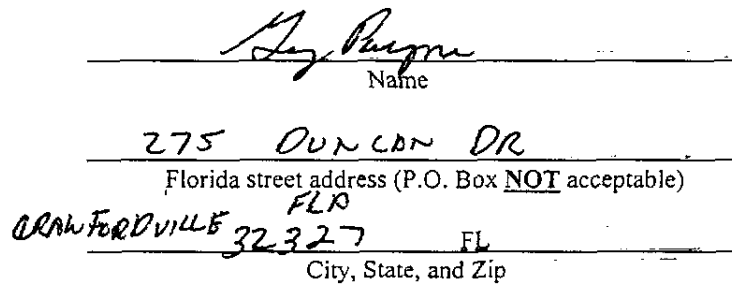 Name
275 DUNCAN DR
Florida street address (P.O. Box NOT acceptable)
FLA
CRAWFORDVILLE 32327 FL
City, State, and Zip